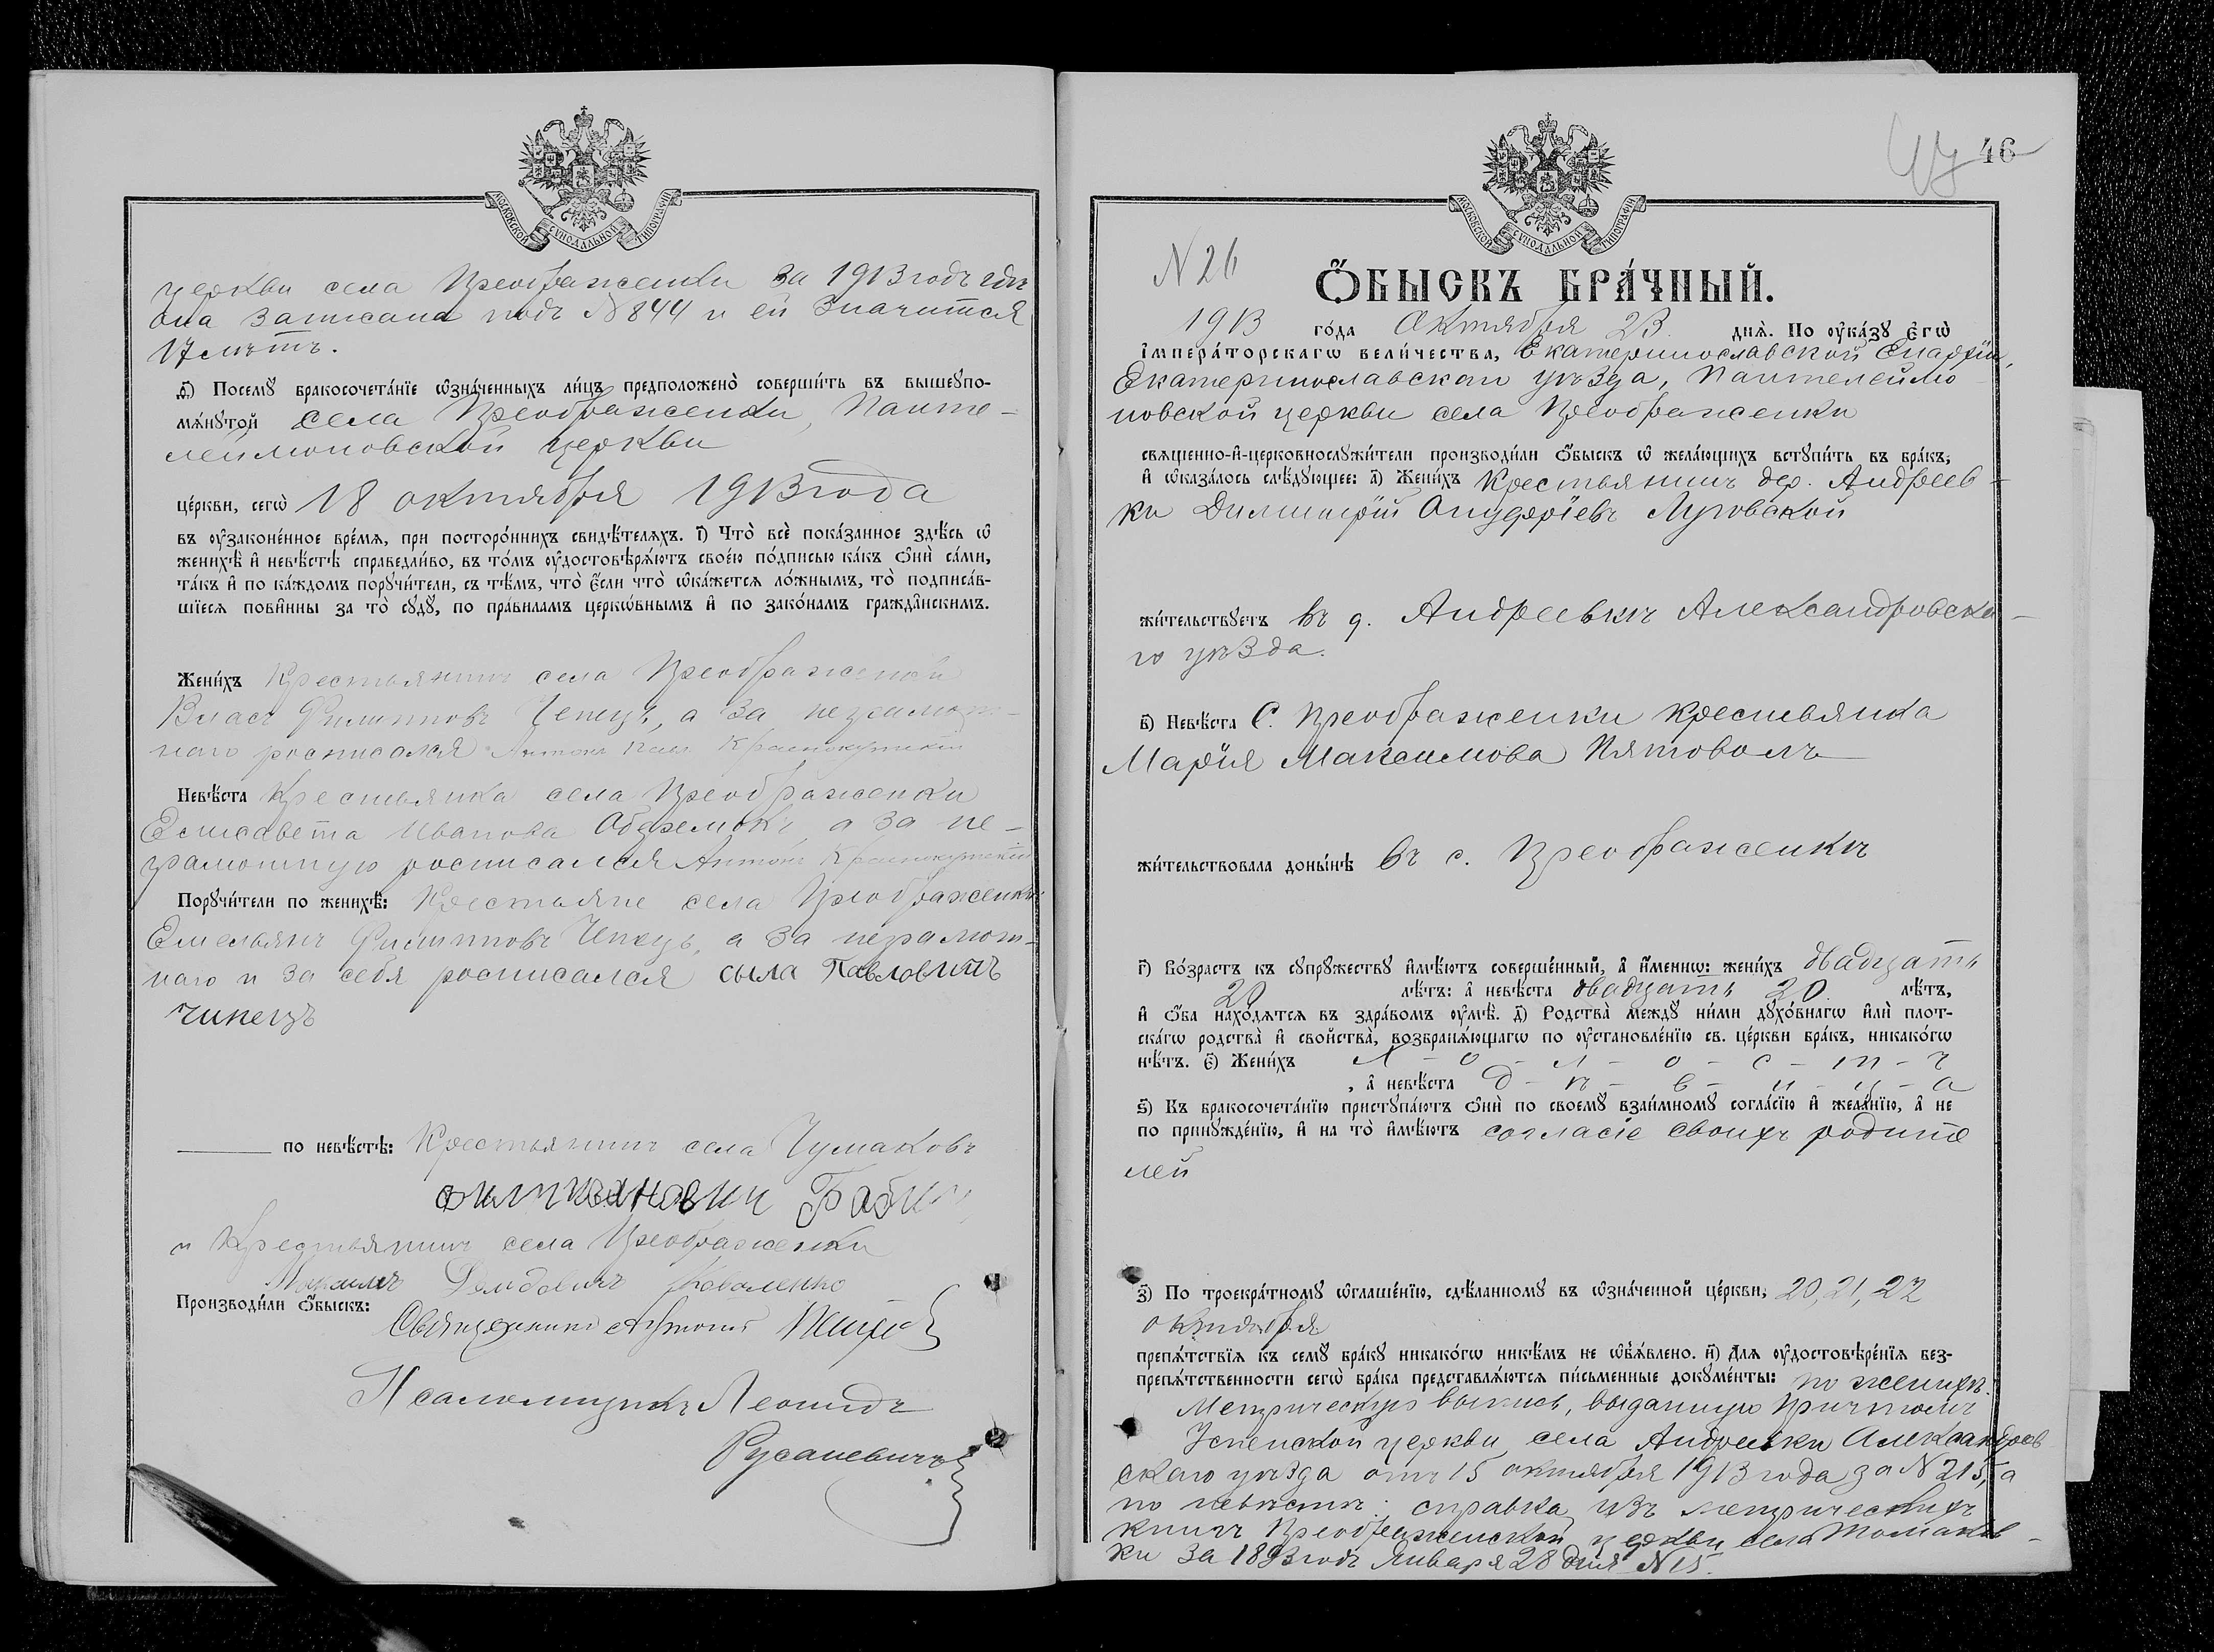 МОСКОВСКОЙ СѴНОДАЛЬНОЙ ТИПОГРАФІИ
церкви села Преображенки за 1913 годъ гдѣ
она записана подъ № 844 и ей значится
17 лѣтъ.
д҃і) Посемꙋ̀ бракосочета́нїе ѡ҆зна́ченныхъ ли́цъ предположено̀ соверши́ть въ вышеꙋпо-
мѧ́нꙋтой села Преображенки, Панте-
леймоновской церкви
це́ркви, сегѡ̀ 18 октября 1913 года
въ ᲂу҆законе́нное вре́мѧ, при посторо́ннихъ свидѣ́телѧхъ. і҃) Что̀ всѐ пока́занное здѣ́сь ѡ҆
женихѣ̀ и҆ невѣ́стѣ справедли́во, въ то́мъ ᲂу҆достовѣрѧ́ютъ свое́ю по́дписью ка́къ ѻ҆нѝ са́ми,
та́къ и҆ по ка́ждомъ порꙋчи́тели, съ тѣ́мъ, что̀ є҆́сли что̀ ѡ҆ка́жетсѧ ло́жнымъ, то̀ подписа́в-
шїесѧ пови́нны за то̀ сꙋдꙋ̀, по пра́виламъ церко́внымъ и҆ по зако́намъ гражда́нскимъ.
Жени́хъ Крестьянинъ села Преображенки
Власъ Филипповъ Чепецъ, а за неграмот-
наго росписался Антонъ Краснокутскій
Невѣ́ста Крестьянка села Преображенки
Елисавета Иванова а за не-
грамотную росписался Антонъ Краснокутскій
Порꙋчи́тели по женихѣ̀: Крестьяне села Преображенки
Емельянъ Филипповъ Чепецъ, а за неграмот-
наго и за себя росписался сыла Павловичъ
чипецъ
по невѣ́стѣ: Крестьянинъ села Чумаковъ
и Крестьянинъ села Преображенки
Максимъ Демдовичъ Коваленко
Производи́ли ѻ҆́быскъ: Священникъ
Псаломщикъ Леонидъ
Русаневичъ
46
МОСКОВСКОЙ СѴНОДАЛЬНОЙ ТИПОГРАФІИ
N 26
Ѻ҆́БЫСКЪ БРА́ЧНЫЙ.
1913 го́да Октября 23 днѧ̀. По ᲂу҆ка́зꙋ Є҆гѡ̀
і҆мпера́торскагѡ вели́чества, Екатеринославской Епархіи,
Екатеринославскаго уѣзда, Пантелеймо
новской церкви села Преображенки
свѧще́нно-и҆-церковнослꙋжи́тели производи́ли ѻ҆́быскъ ѡ҆ жела́ющихъ встꙋпи́ть въ бра́къ,
и҆ ѡ҆каза́лось слѣ́дꙋющее: а҃) Жени́хъ Крестьянинъ дер. Андреев-
ки Димитрій Онуфріевъ Луговской
жи́тельствꙋетъ въ д. Андреевкѣ Александровска-
го уѣзда.
в҃) Невѣ́ста С. Преображенки крестьянка
Марія Максимова Пятоволъ
жи́тельствовала доны́нѣ въ с. Преображенкѣ
г҃) Во́зрастъ къ сꙋпрꙋ́жествꙋ и҆мѣ́ютъ соверше́нный, а҆ и҆́менно: жени́хъ двадцать
20 лѣ́тъ: а҆ невѣ́ста двадцать 20 лѣ́тъ,
и҆ ѻ҆́ба нахо́дѧтсѧ въ здра́вомъ ᲂу҆мѣ̀. д҃) Родства̀ междꙋ̀ ни́ми дꙋхо́внагѡ и҆лѝ плот-
ска́гѡ родства̀ и҆ сво́йства, возбранѧ́ющагѡ по ᲂу҆становле́нїю св. це́ркви бра́къ, никако́гѡ
нѣ́тъ. є҃) Жени́хъ Х - о - л - о - с - т - ъ
, а҆ невѣ́ста д - ѣ - в - и - ц - а
ѕ҃) Къ бракосочета́нїю пристꙋпа́ютъ ѻ҆нѝ по своемꙋ̀ взаи́мномꙋ согла́сїю и҆ жела́нїю, а҆ не
по принꙋжде́нїю, и҆ на то̀ и҆мѣ́ютъ согласіе своихъ родите
лей
з҃) По троекра́тномꙋ ѡ҆глаше́нїю, сдѣ́ланномꙋ въ ѡ҆зна́ченной це́ркви, 20, 21, 22
октября
препѧ́тствїѧ къ семꙋ̀ бра́кꙋ никако́гѡ никѣ́мъ не ѡ҆б̾ѧ́влено. и҃) Для ᲂу҆достовѣре́нїѧ без-
препѧ́тственности сегѡ̀ бра́ка представлѧ́ютсѧ пи́сьменные докꙋме́нты: по женихѣ:
Метрическую выпись, выданную Причтомъ
Успенской церкви, села Андреевки Александров
скаго уѣзда отъ 15 октября 1913 года за N 215, а
по невѣстѣ: справка изъ метрическихъ
книгъ Преображенской церкви села Томаков-
ки за 1893 годъ Января 28 дня N 15.